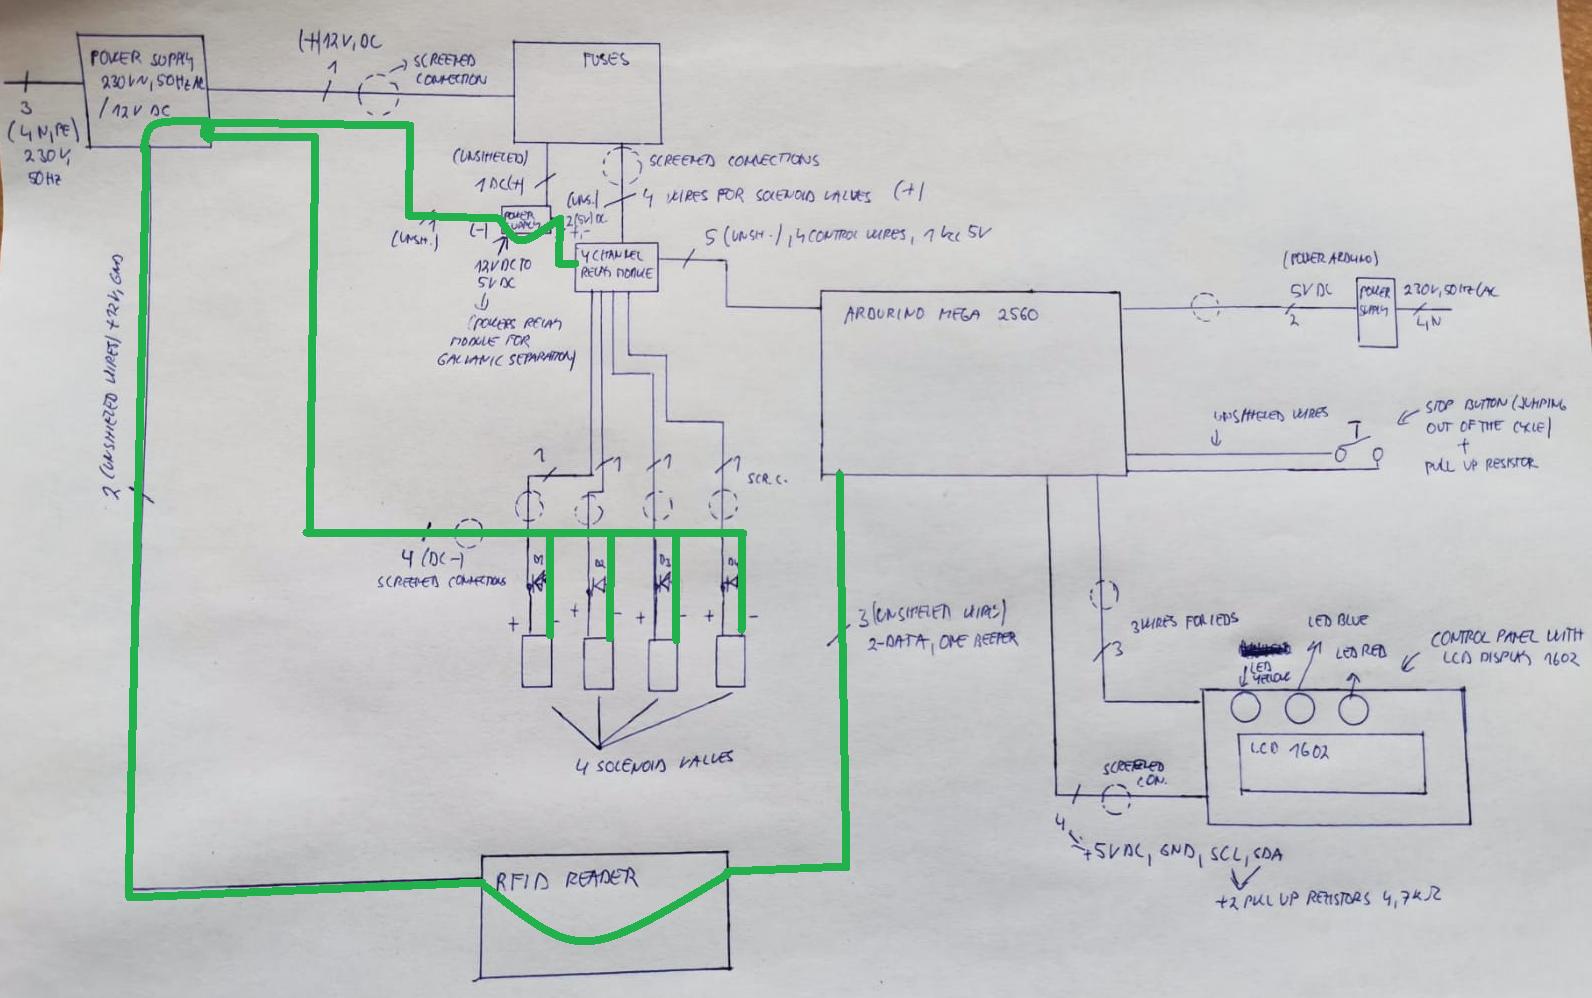 POWER SUPPLY
230V N, 50Hz AC
/ 12V DC
3
(L, N, PE)
230V,
50Hz
(+) 12V, DC
1
SCREENED
CONNECTION
FUSES
(UNSHIELED)
1 DC(+)
SCREENED CONNECTIONS
(UNS.)
4 WIRES FOR SOLENOID VALVES (+)
POWER
SUPPLY
2 (5V) DC
+, -
1
(UNSH.)
(-)
12V DC TO
5V DC
(POWERS RELAY
MODULE FOR
GALVANIC SEPARATION)
4 CHANNEL
RELAY MODULE
5 (UNSH.), 4 CONTROL WIRES, 1 Vcc 5V
ARDURINO MEGA 2560
(POWER ARDUINO)
5V DC
2
POWER
SUPPLY
230V, 50Hz (AC
L, N
UNSHIELED WIRES
STOP BUTTON (JUMPING
OUT OF THE CYCLE)
+
PULL UP RESISTOR
2 (UNSHIELED WIRES) +12V, GND
1
1
1
1
SCR. C.
4 (DC-)
SCREENED CONNECTIONS
D1
D2
D3
D4
+ -
+ -
+ -
+ -
4 SOLENOID VALVES
3 (UNSHIELED WIRES)
2-DATA, ONE BEEPER
3 WIRES FOR LEDS
3
LED
YELLOW
LED BLUE
LED RED
CONTROL PANEL WITH
LCD DISPLAY 1602
LCD 1602
SCREENED
CON.
4
+5V DC, GND, SCL, SDA
+2 PULL UP RESISTORS 4,7kΩ
RFID READER